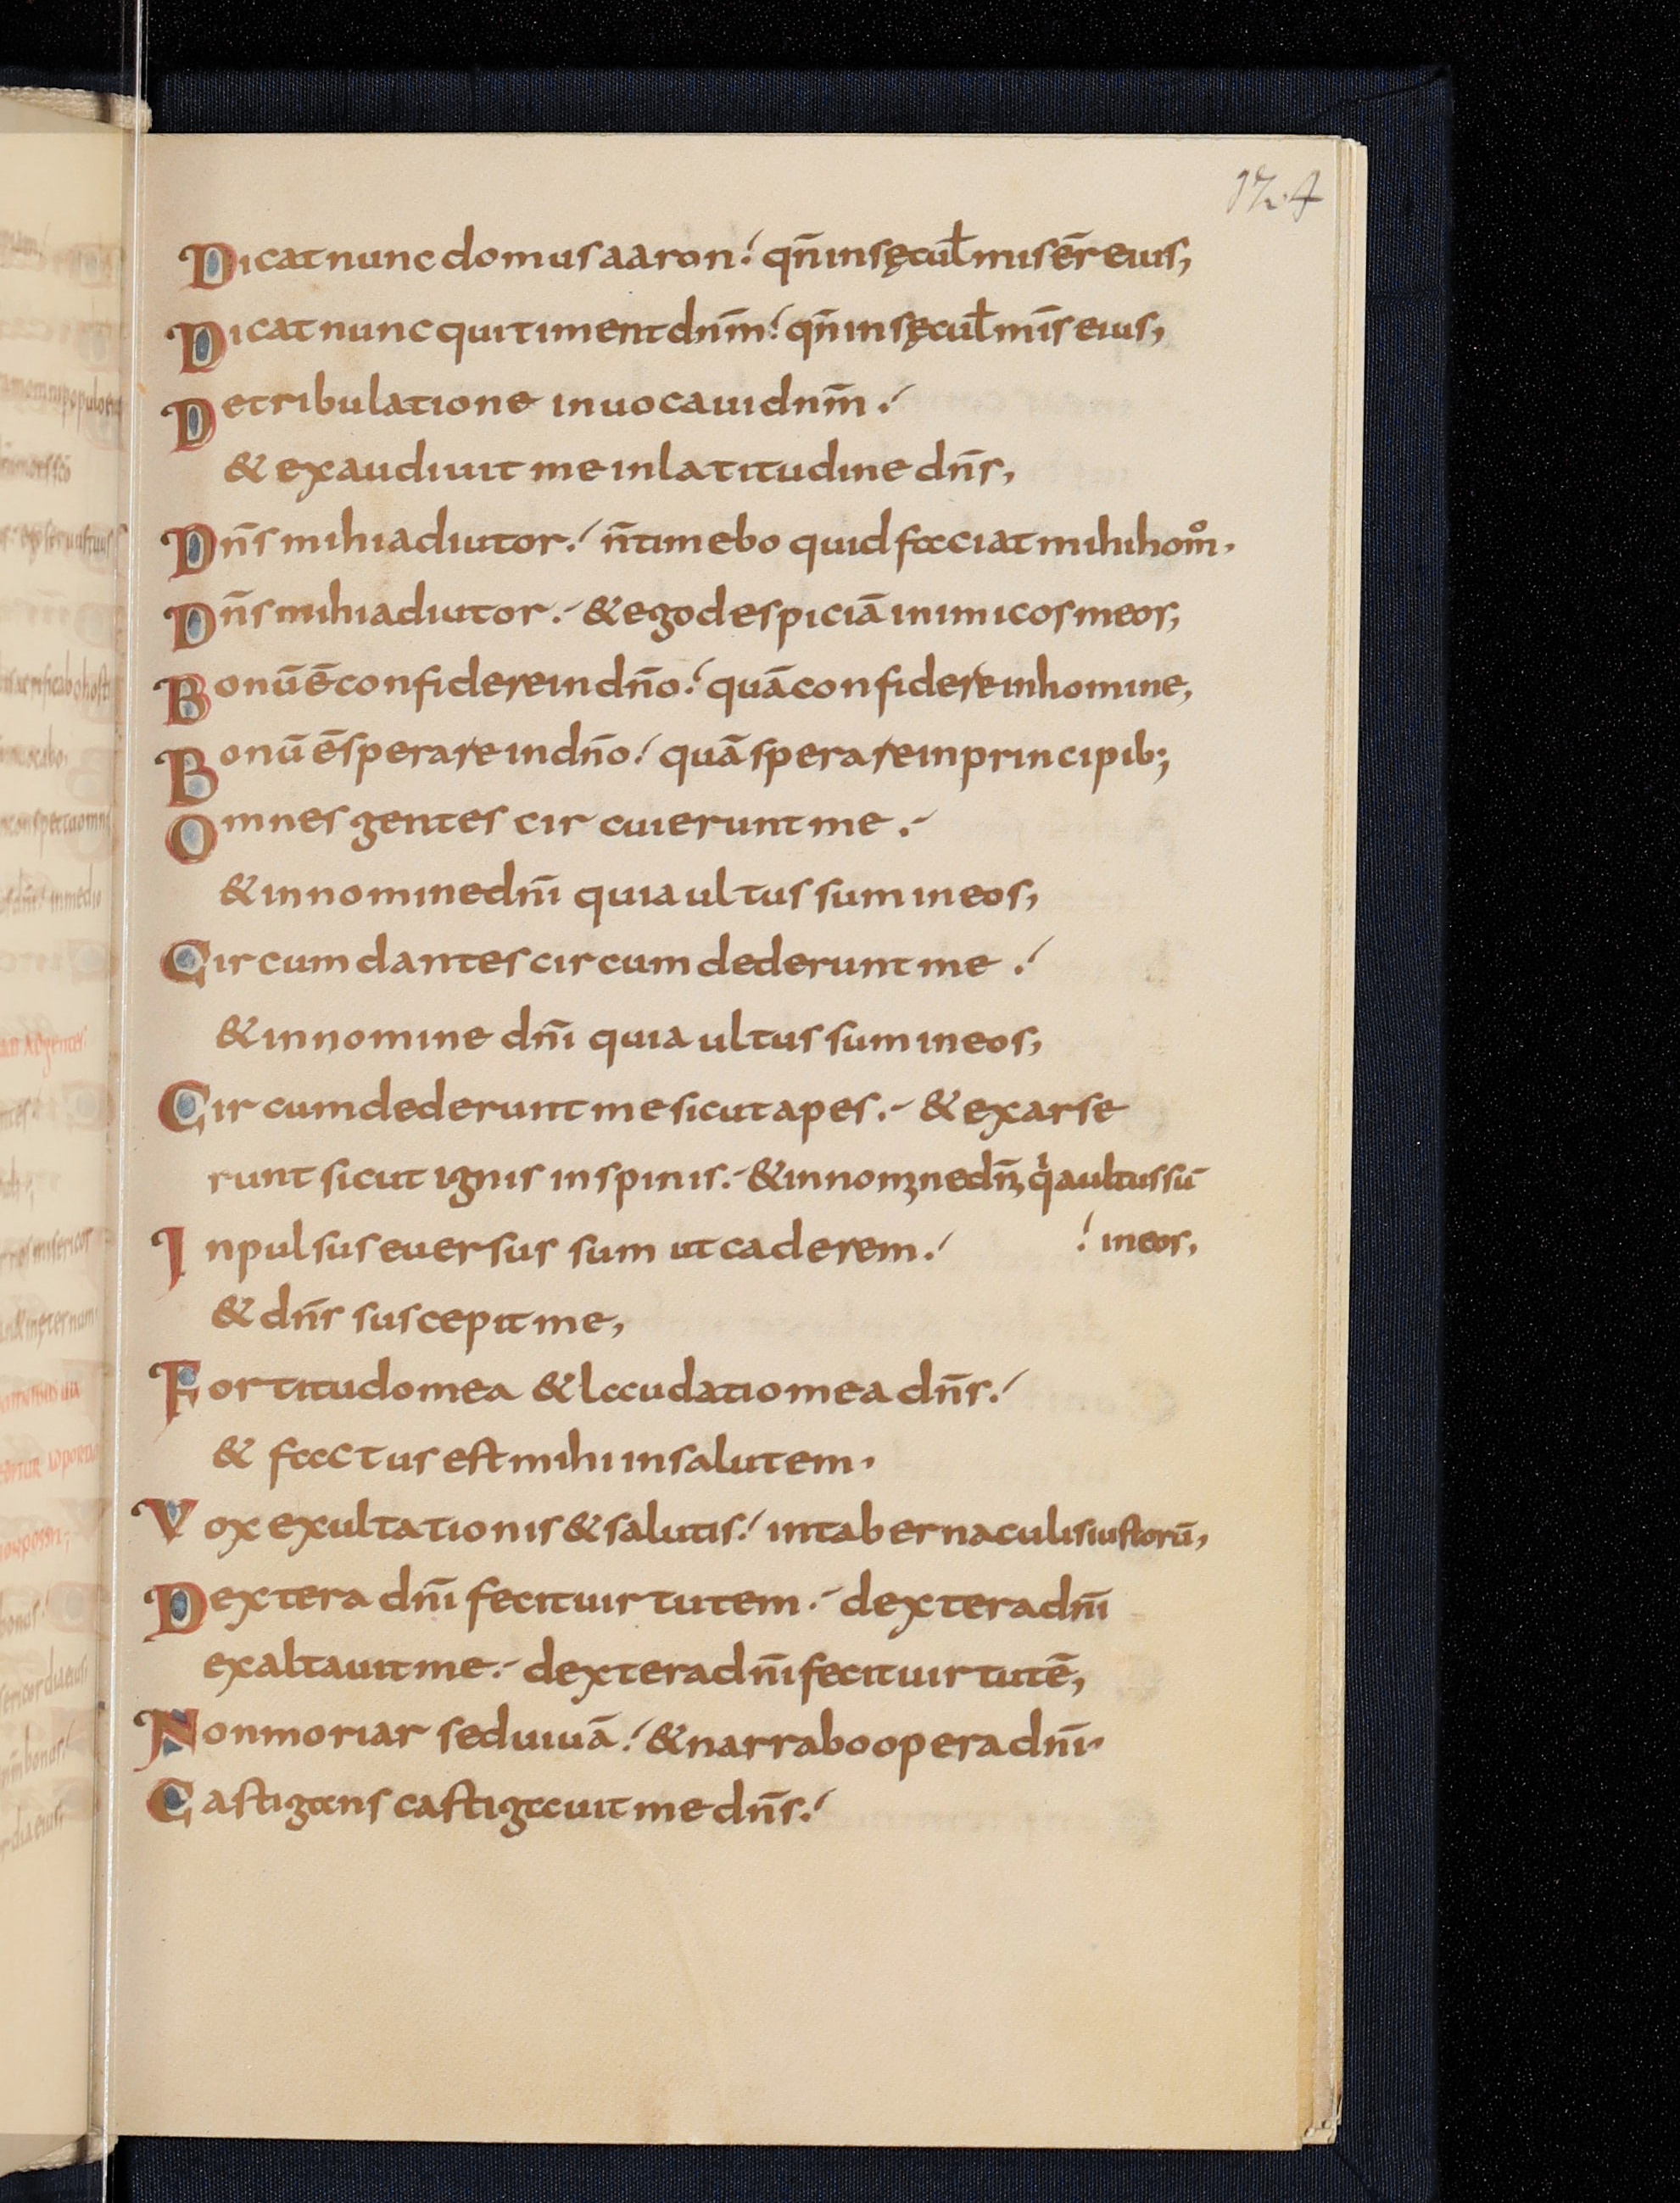 124
Dicat nunc domus aaron! qn̄ in sęcul̄ misēr eius,
Dicat nunc qui timent dnm̄! qn̄ in sęcul̄ mis̄ eius,
De tribulatione inuocaui dnm̄.
& exaudiuit me in latitudine dn̄s,
Dn̄s mihi adiutor! n̄ timebo quid faciat mihi hom̊.
Dn̄s mihi adiutor. & ego despiciā inimicos meos;
Bonū ē confidere in dn̄o! quā confidere in homine,
Bonū ē sperare in dn̄o! quā sperare in principib;
Omnes gentes circuierunt me.
& in nomine dn̄i quia ultus sum in eos,
Circumdantes circumdederunt me.
& in nomine dn̄i quia ultus sum in eos,
Circumdederunt me sicut apes. & exarse
runt sicut ignis in spinis. & in nomine dn̄i qia ultus sū
! in eos,
Inpulsus euersus sum ut caderem!
& dn̄s suscepit me,
Fortitudo mea & laudatio mea dn̄s!
& factus est mihi in salutem.
Vox exultationis & salutis! in tabernaculis iustorū,
Dextera dn̄i fecit uirtutem. dextera dn̄i
exaltauit me. dextera dn̄i fecit uirtutē,
Non moriar sed uiuā! & narrabo opera dn̄i.
Castigans castigauit me dn̄s!